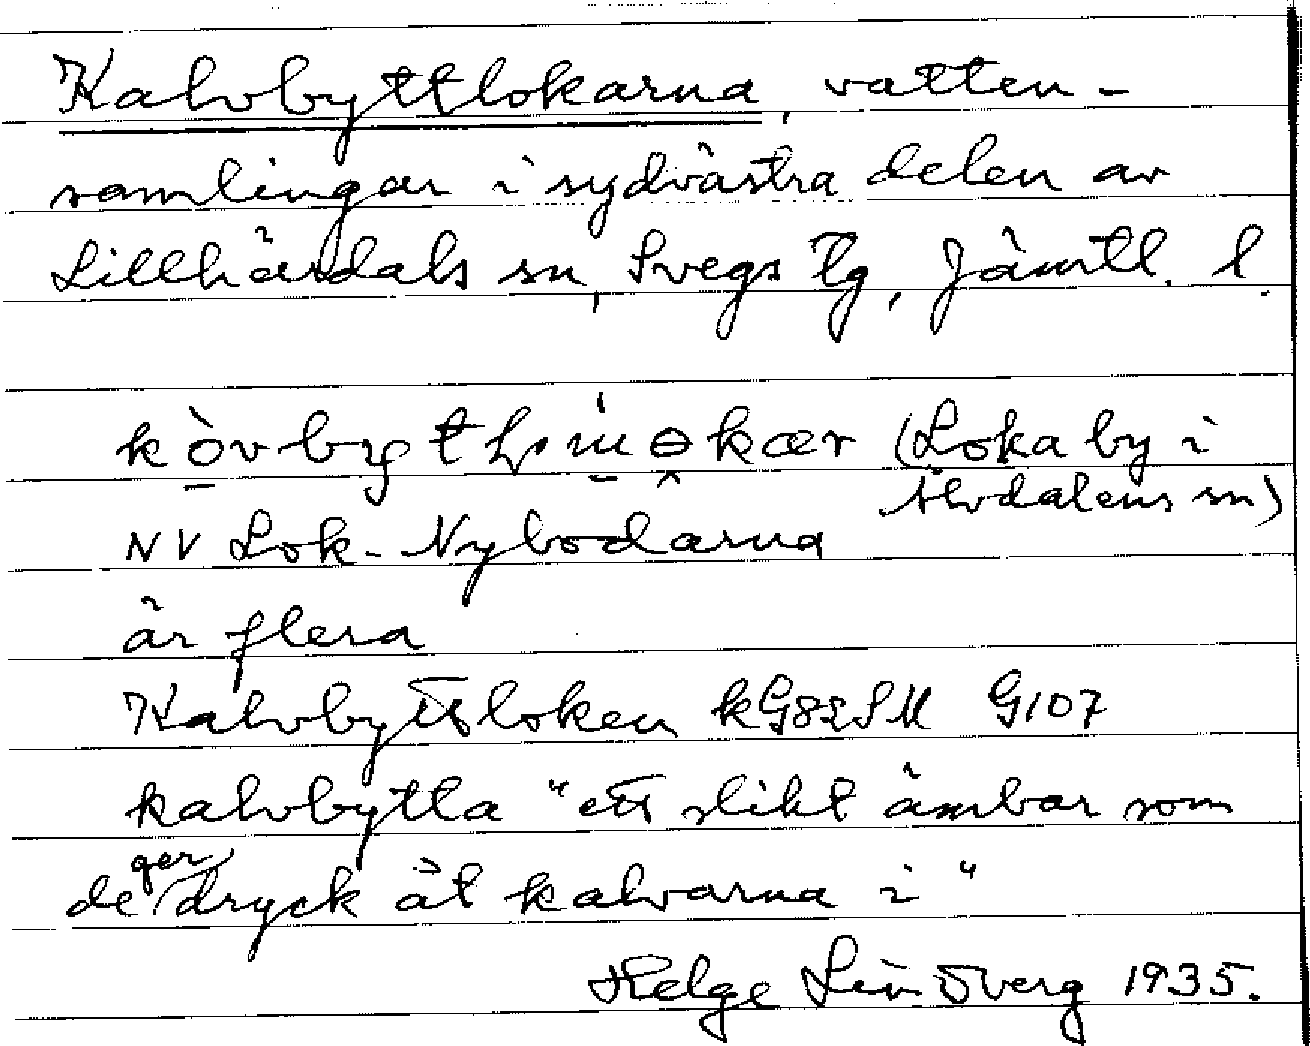 Kalvbyttlokarna, vatten-
samlingar i sydvästra delen av
Lillhärdals sn, Svegs tg, Jämtl. l.
(Loka by i
Älvdalens sn)
NV Lok-Nybodarna
är flera
Kalvbyttloken kG82SM G107
kalvbytta "ett slikt ämbar som
de ger dryck åt kalvarna i"
Helge Lindberg 1935.